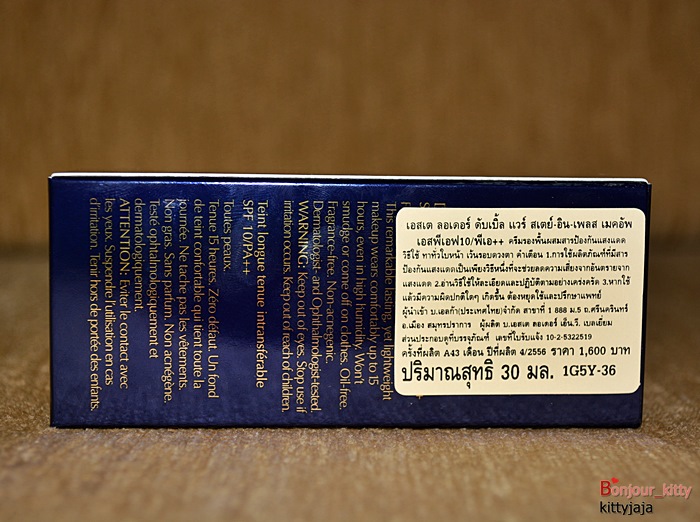 เอสเต ลอเดอร์ ดับเบิ้ล แวร์ สเตย์-อิน-เพลส เมคอัพ
เอสพีเอฟ10/พีเอ++ ครีมรองพื้นผสมสารป้องกันแสงแดด
วิธีใช้ ทาทั่วใบหน้า เว้นรอบดวงตา คำเตือน 1.การใช้ผลิตภัณฑ์ที่มีสาร
ป้องกันแสงแดดเป็นเพียงวิธีหนึ่งที่จะช่วยลดความเสี่ยงจากอันตรายจาก
แสงแดด 2.อ่านวิธีใช้ให้ละเอียดและปฏิบัติตามอย่างเคร่งครัด 3.หากใช้
แล้วมีความผิดปกติใดๆ เกิดขึ้น ต้องหยุดใช้และปรึกษาแพทย์
ผู้นำเข้า บ.เอลก้า(ประเทศไทย)จำกัด สาขาที่ 1 888 ม.5 ถ.ศรีนครินทร์
อ.เมือง สมุทรปราการ ผู้ผลิต บ.เอสเต ลอเดอร์ เอ็น.วี. เบลเยี่ยม
ส่วนประกอบดูที่บรรจุภัณฑ์ เลขที่ใบรับแจ้ง 10-2-5322519
ครั้งที่ผลิต A43 เดือน ปีที่ผลิต 4/2556 ราคา 1,600 บาท
ปริมาณสุทธิ 30 มล. 1G5Y-36
This remarkable lasting, yet lightweight
makeup wears comfortably up to 15
hours, even in high humidity. Won't
smudge or come off on clothes. Oil-free.
Fragrance-free. Non-acnegenic.
Dermatologist- and Ophthalmologist-tested.
WARNING: Keep out of eyes. Stop use if
irritation occurs. Keep out of reach of children.
Teint longue tenue intransférable
SPF 10/PA++
Toutes peaux.
Tenue 15 heures. Zéro défaut. Un fond
de teint confortable qui tient toute la
journée. Ne tache pas les vêtements.
Non gras. Sans parfum. Non acnégène.
Testé ophtalmologiquement et
dermatologiquement.
ATTENTION: Eviter le contact avec
les yeux. Suspendre l'utilisation en cas
d'irritation. Tenir hors de portée des enfants.
Bonjour_kitty
kittyjaja